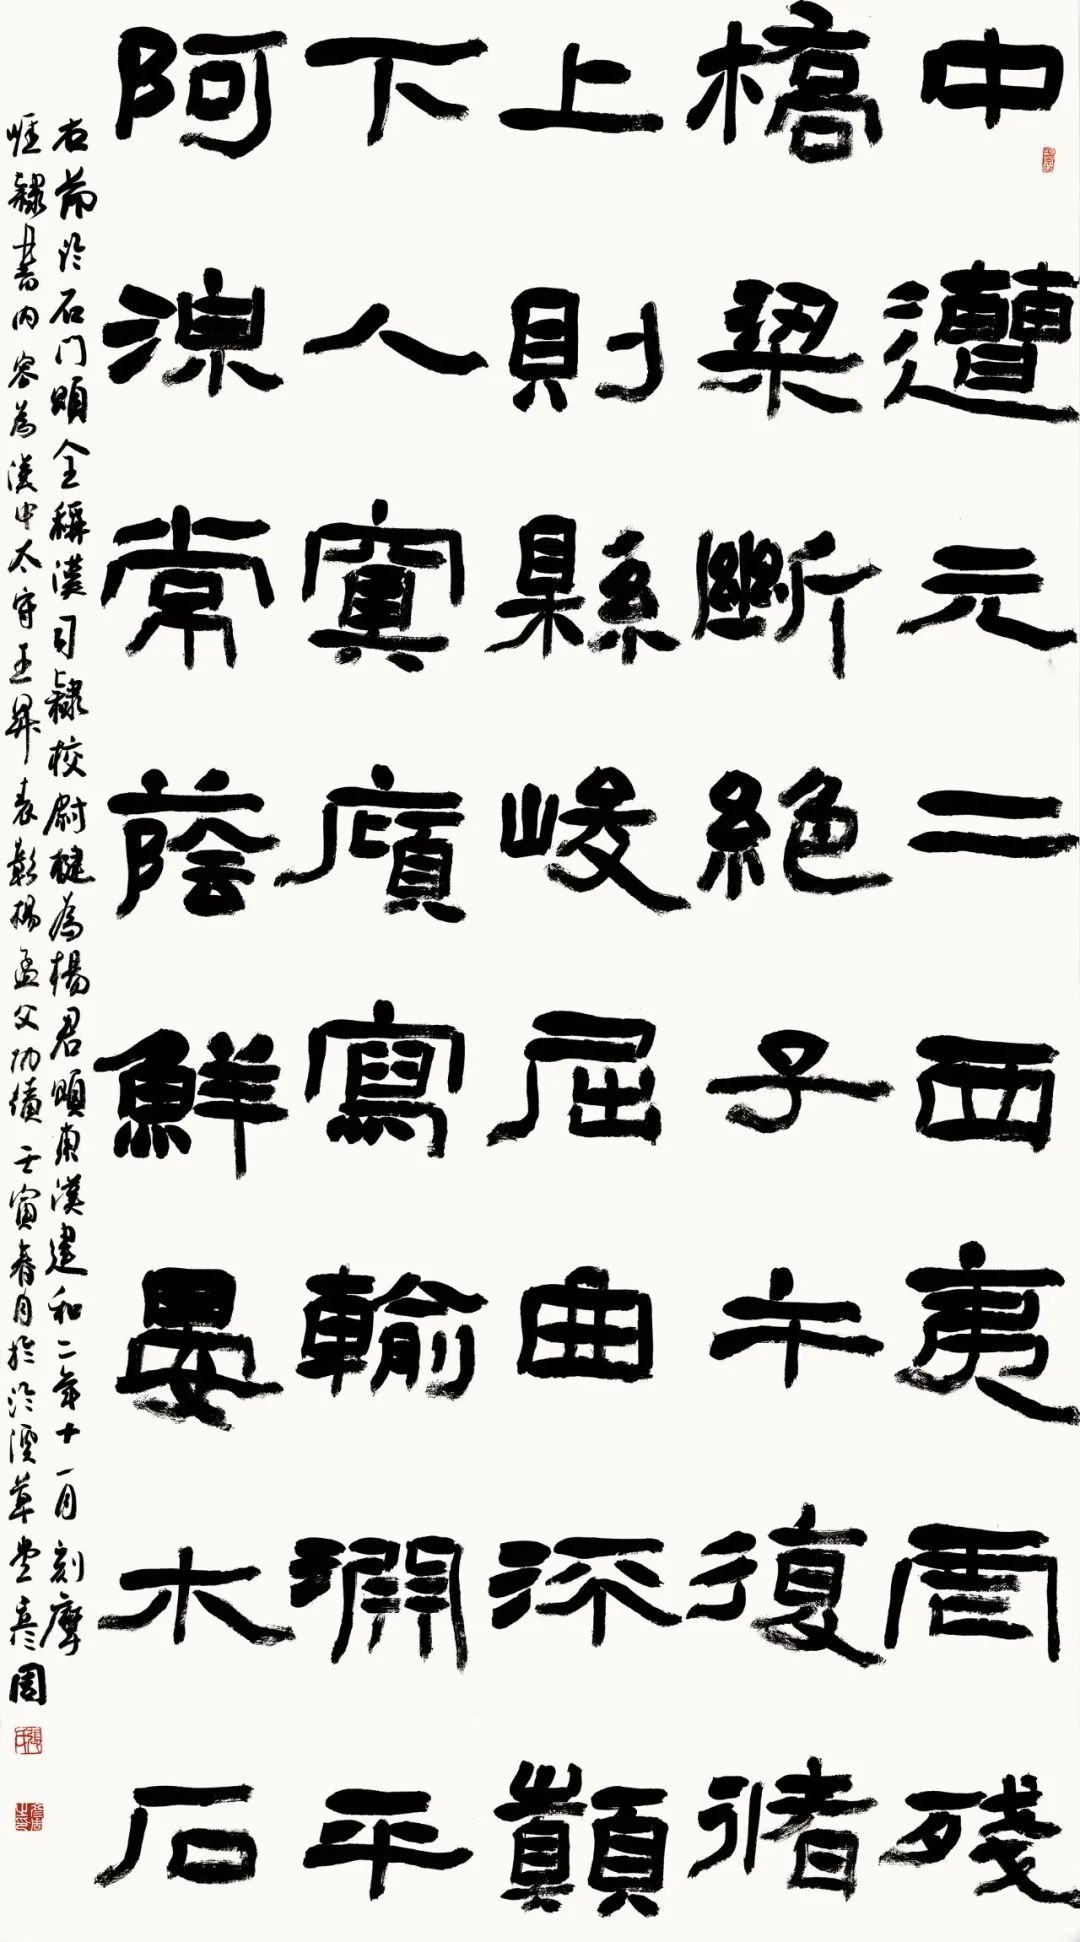 中遭元二西夷虐殘
橋梁斷絕子午復循
上則縣峻屈曲流顛
下入冥廎寫輸淵平
阿湶常蔭鮮晏木石
右節臨石門頌全稱漢司隸校尉楗為楊君頌東漢建和二年十一月刻摩
崖隸書內容為漢中太守王昇表彰楊孟文功績壬寅春月於溪草堂彥周